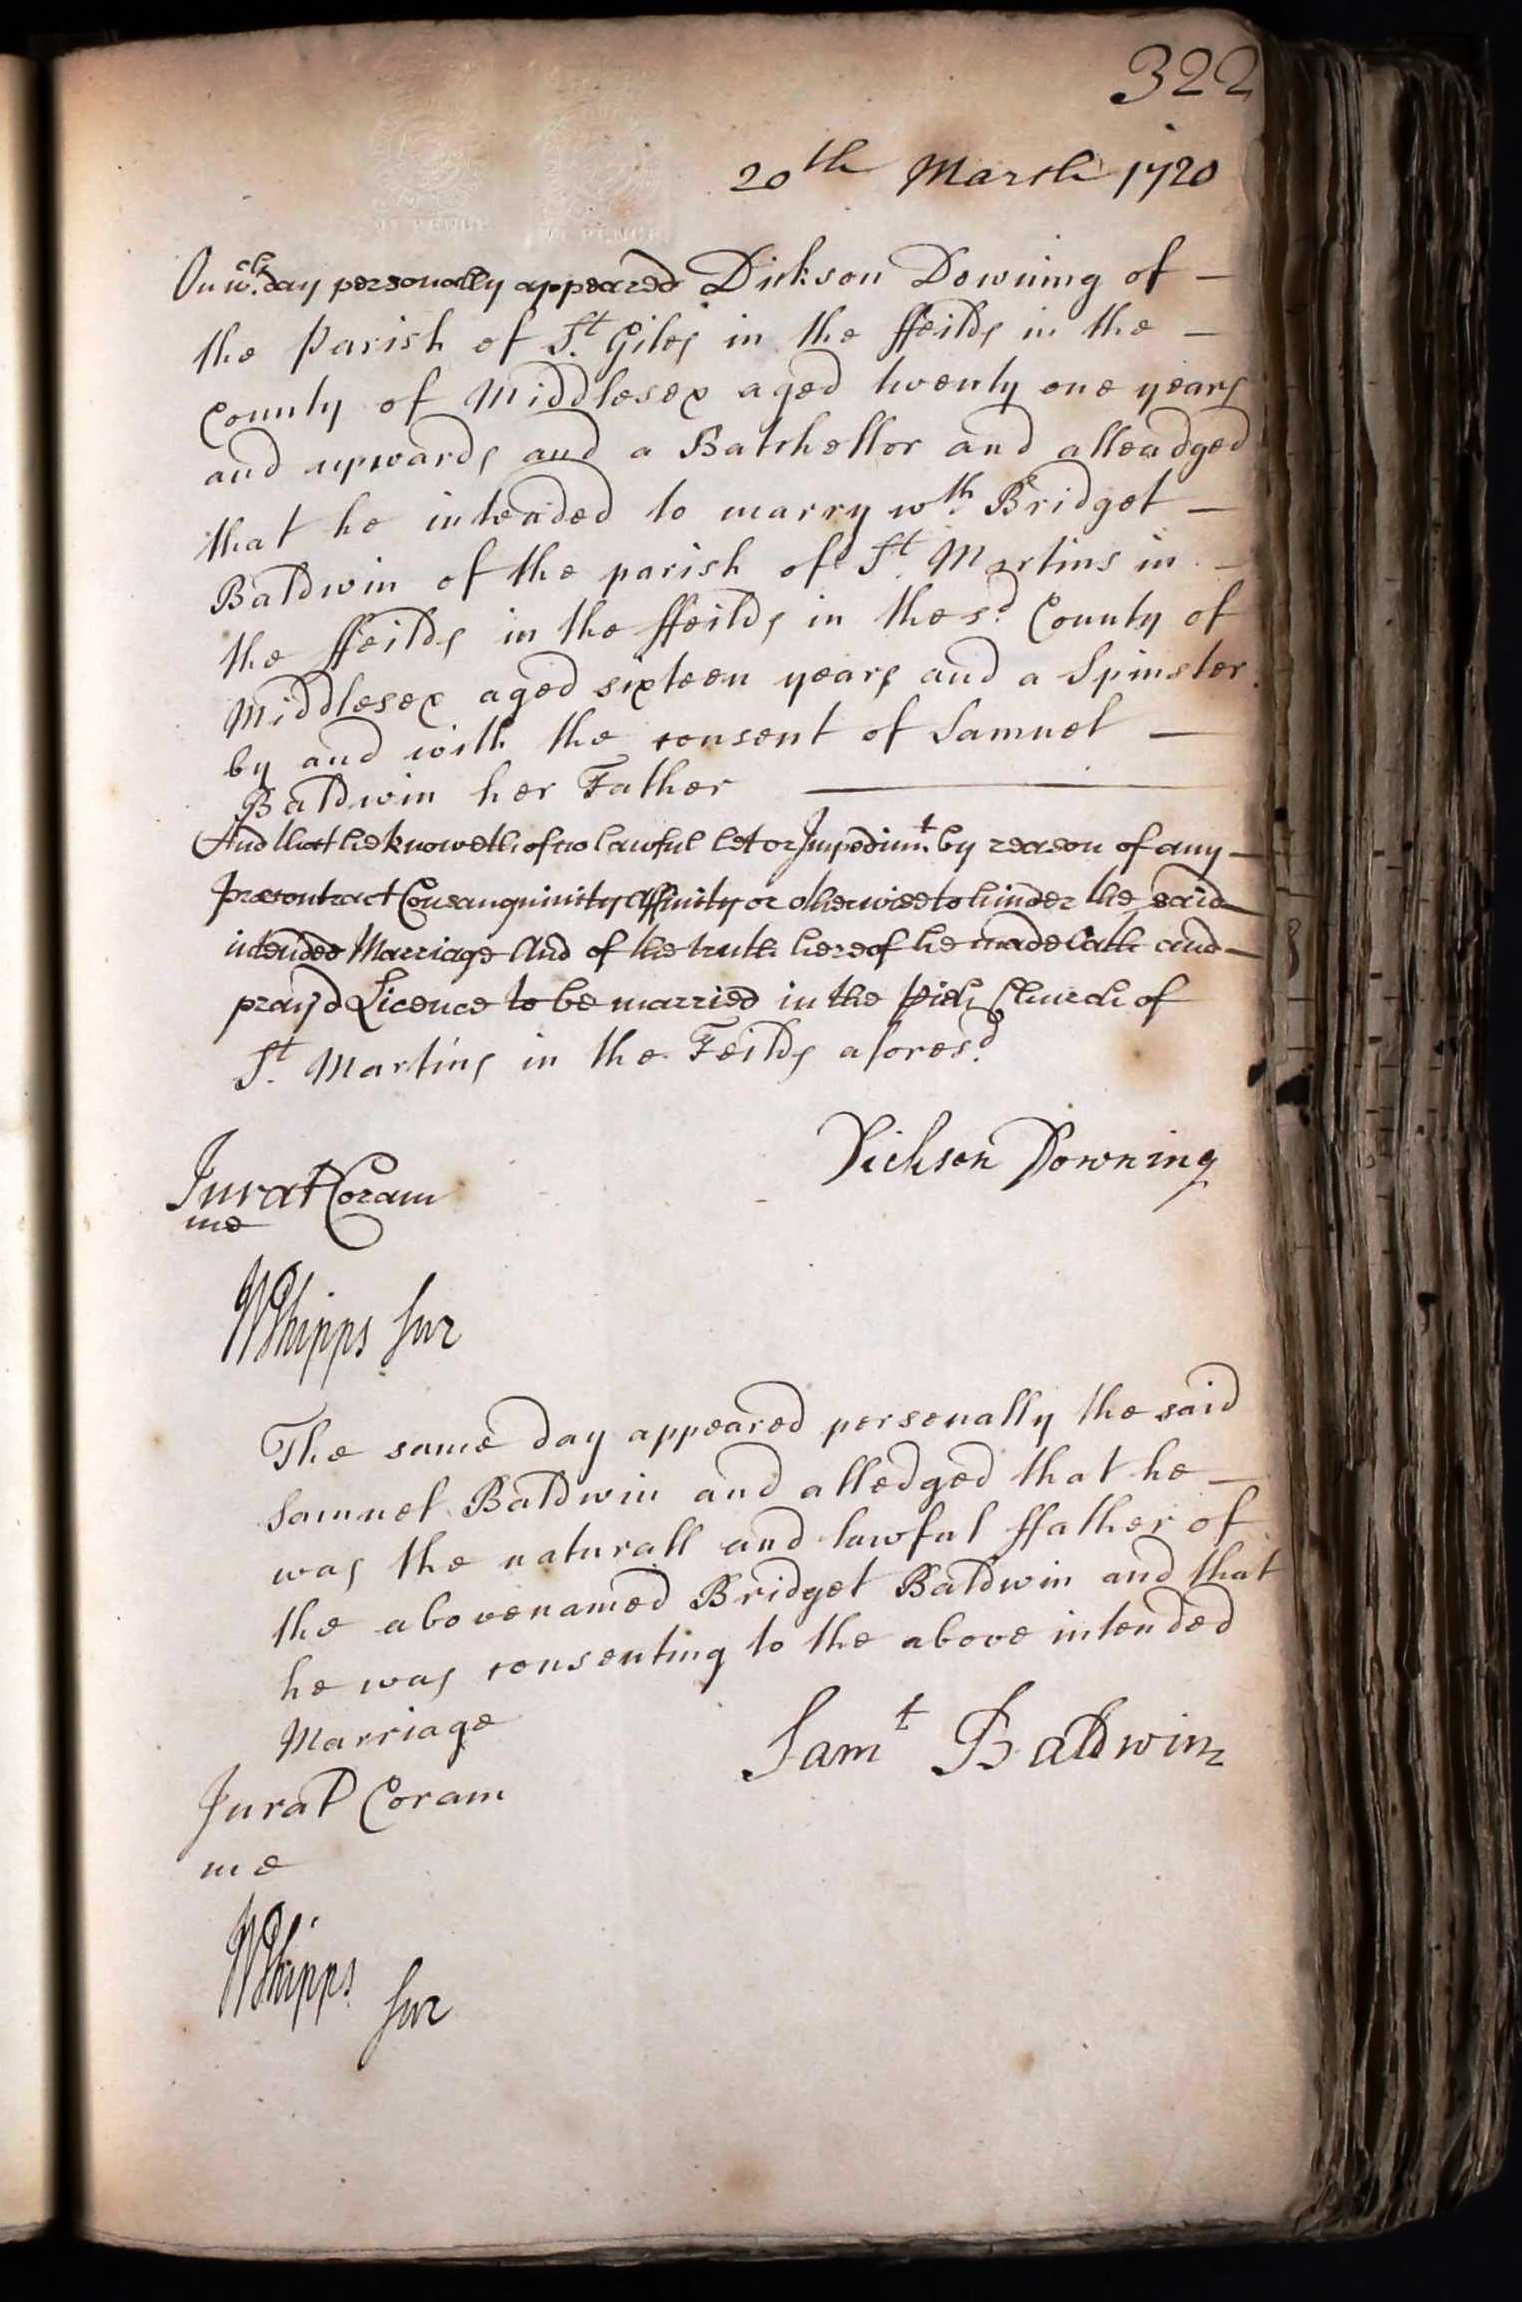 322
20th March 1720
On wch. day personally appeared Dickson Downing of —
the Parish of St. Giles in the ffeilds in the —
County of Middlesex aged twenty one years
and upwards and a Batchellor and alleadged
that he intended to marry wth. Bridget —
Baldwin of the parish of St. Martins in —
the ffeilds in the ffeilds in the sd. County of
Middlesex aged sixteen years and a Spinster
by and with the consent of Samuel —
Baldwin her Father —
And that he knoweth of no lawful let or Impedimt. by reason of any —
Precontract Consanguinity Affinity or otherwise to hinder the said
intended Marriage And of the truth hereof he made Oath and —
pray'd Licence to be married in the Pish Church of
St. Martins in the Feilds aforesd.
Dickson Downing
Jurat Coram
me
WPhipps Sur
The same day appeared personally the said
Samuel Baldwin and alledged that he —
was the naturall and lawful ffather of
the abovenamed Bridget Baldwin and that
he was consenting to the above intended
Marriage
Saml Baldwin
Jurat Coram
me
WPhipps
Sur
VI PENCE VI PENCE